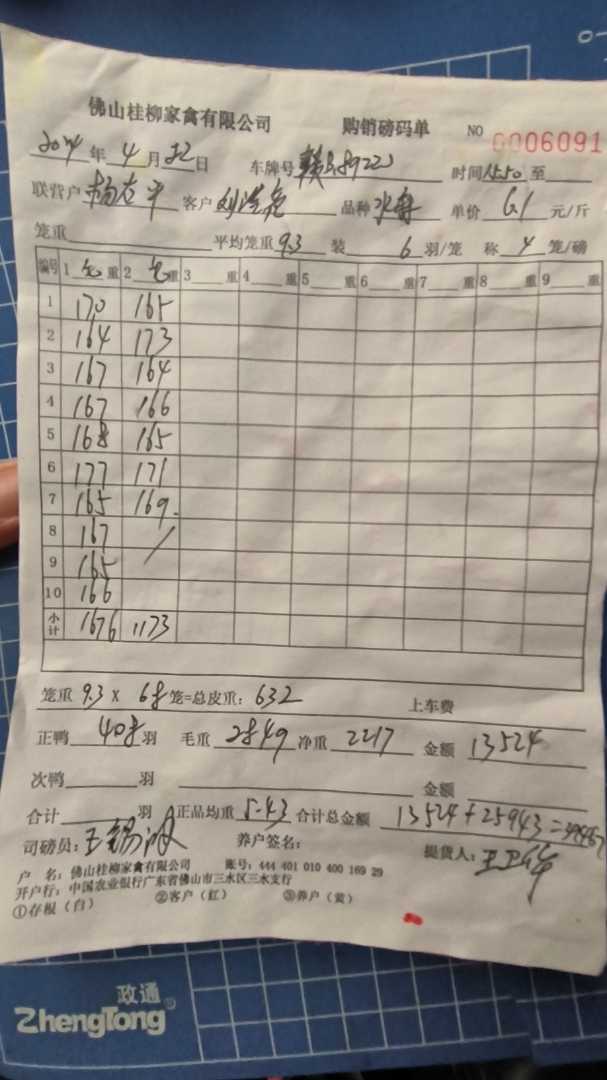 佛山桂柳家禽有限公司 购销磅码单 NO 0006091
年 4 月 22 日 车牌号 时间 1550 至
联营户 杨友平 客户 品种 单价 6.1 元/斤
笼重 平均笼重 9.3 装 6 羽/笼 称 4 笼/磅
编号 1 毛 重 2 毛 重 3 重 4 重 5 重 6 重 7 重 8 重 9 重
1 170 165
2 164 173
3 167 164
4 167 166
5 168 165
6 177 171
7 165 169
8 167
9 165
10 166
小计 1676 1173
笼重 9.3 X 68 笼=总皮重: 632 上车费
正鸭 408 羽 毛重 2849 净重 2217 金额 13524
次鸭 羽 金额
合计 羽 正品均重 5.43 合计总金额 13524+25943=39467
司磅员: 养户签名: 提货人:
户 名: 佛山桂柳家禽有限公司 账号: 444 401 010 400 169 29
开户行: 中国农业银行广东省佛山市三水区三水支行
①存根（白） ②客户（红） ③养户（黄）
政通
ZhengTong